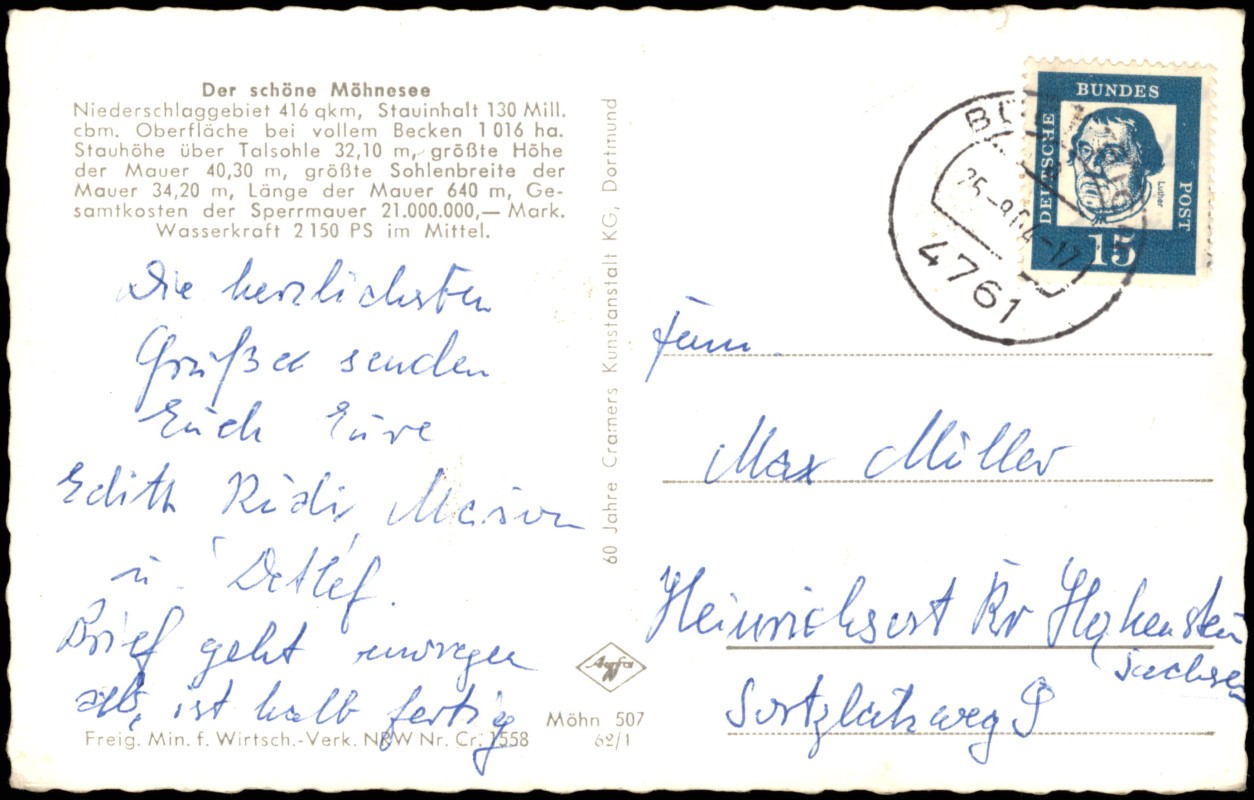 Der schöne Möhnesee
Niederschlaggebiet 416 qkm, Stauinhalt 130 Mill.
cbm. Oberfläche bei vollem Becken 1016 ha.
Stauhöhe über Talsohle 32,10 m, größte Höhe
der Mauer 40,30 m, größte Sohlenbreite der
Mauer 34,20 m, Länge der Mauer 640 m, Ge-
samtkosten der Sperrmauer 21.000.000,— Mark.
Wasserkraft 2150 PS im Mittel.
Die herzlichsten
Grüße senden
Euch Eure
Edith Rudi, Marion
u. Detlef.
Brief geht morgen
ab, ist halb fertig
Freig. Min. f. Wirtsch.-Verk. NRW Nr. Cr. 1558
60 Jahre Cramers Kunstanstalt KG, Dortmund
Agfa
Möhn 507
62/1
DEUTSCHE
BUNDES
POST
Luther
15
4761
Fam.
Max Müller
Heinrichsort Kr Hohenstein
Sachsen